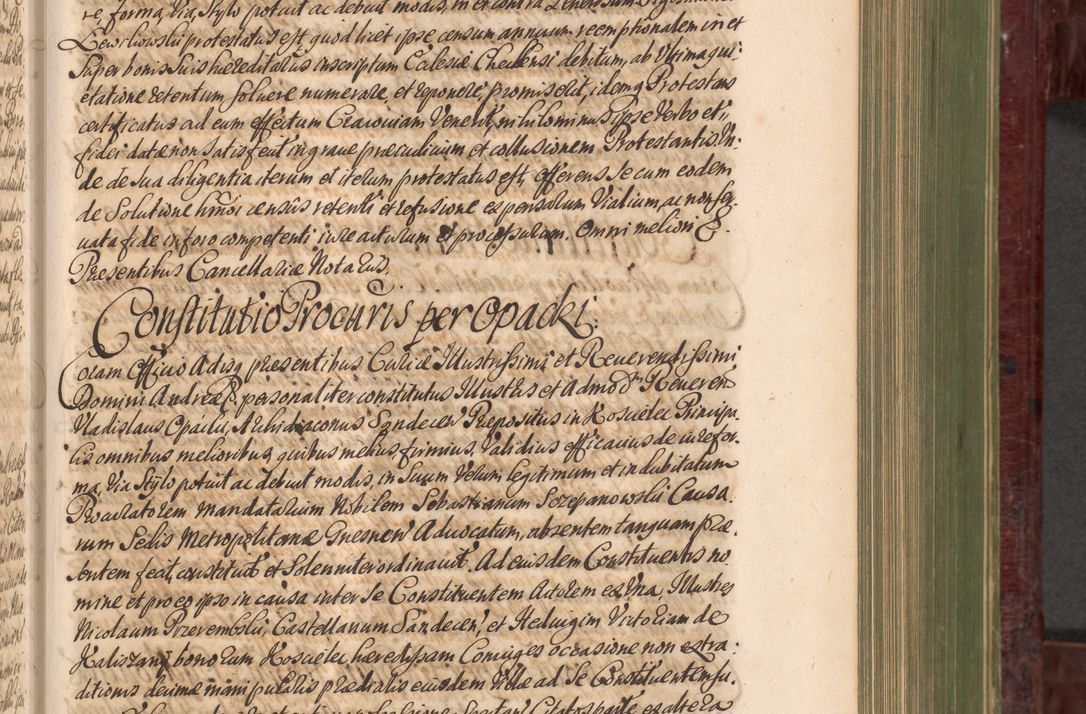 re, forma, Via, Stylo potuit ac debuit modis, in et contra
Lewiliowskii protestatus est quod licet ipse censum annuum reemptionalem in et
super bonis suis haereditarus inscriptum Eclesiae Chelensi debitum, ab Vltima qui:
etatione retentum soluere numerare, et reponere promiserit, idemq Protestans
certificatus ad eum effectum Cracouiam Venerit, nihilominus ipse Verbo et
fidei datae non satisfecit in graue praeiudicium et collusionem Protestantis Vn:
de de sua diligentia iterum et iterum protestatus est, offerens se cum eodem
de Solutione hmoi census retenti et refusione expensarum Vialium, ac non ser:
uata fide in foro competenti iure acturum et processurum. Omni meliori &.
Praesentibus Cancellariae Notariis.
Constitutio Procuris per Opacki:
Coram Officio Actisq praesentibus Curiae Illustrissimi et Reuerendissimi
Domini Andreae P. personaliter constitutus Illustris et Admod Reueren
Vladislaus Opacki, Archidiaconus Sandecen Praepositus in Koscielec Principa
lis omnibus melioribus quibus melius, firmius, Validius efficacius de iure for:
ma, Via Stylo potuit ac debuit modis, in suum Verum legitimum et indubitatum
Procuratorem Mandatarium Nobilem Sebastianum Sczepanowski Causa:
rum Sedis Metropolitanae Gnesnen Aduocatum, absentem tanquam prae
sentem fecit, constituit et Solenniter ordinauit. Ad eiusdem Constituentis no
mine et pro eo ipso in causa inter se Constituentem Actorem ex Vna, Illustres
Nicolaum Przerembski, Castellanum Sandecen, et Heduigim Victoriam de
Kaliszany bonorum Koscielec haeredipsam Coniuges occasione non extra:
ditionis decimae manipularis praedialis eiusdem Villae ad se Constituentem su.
Citatos parte ex altera